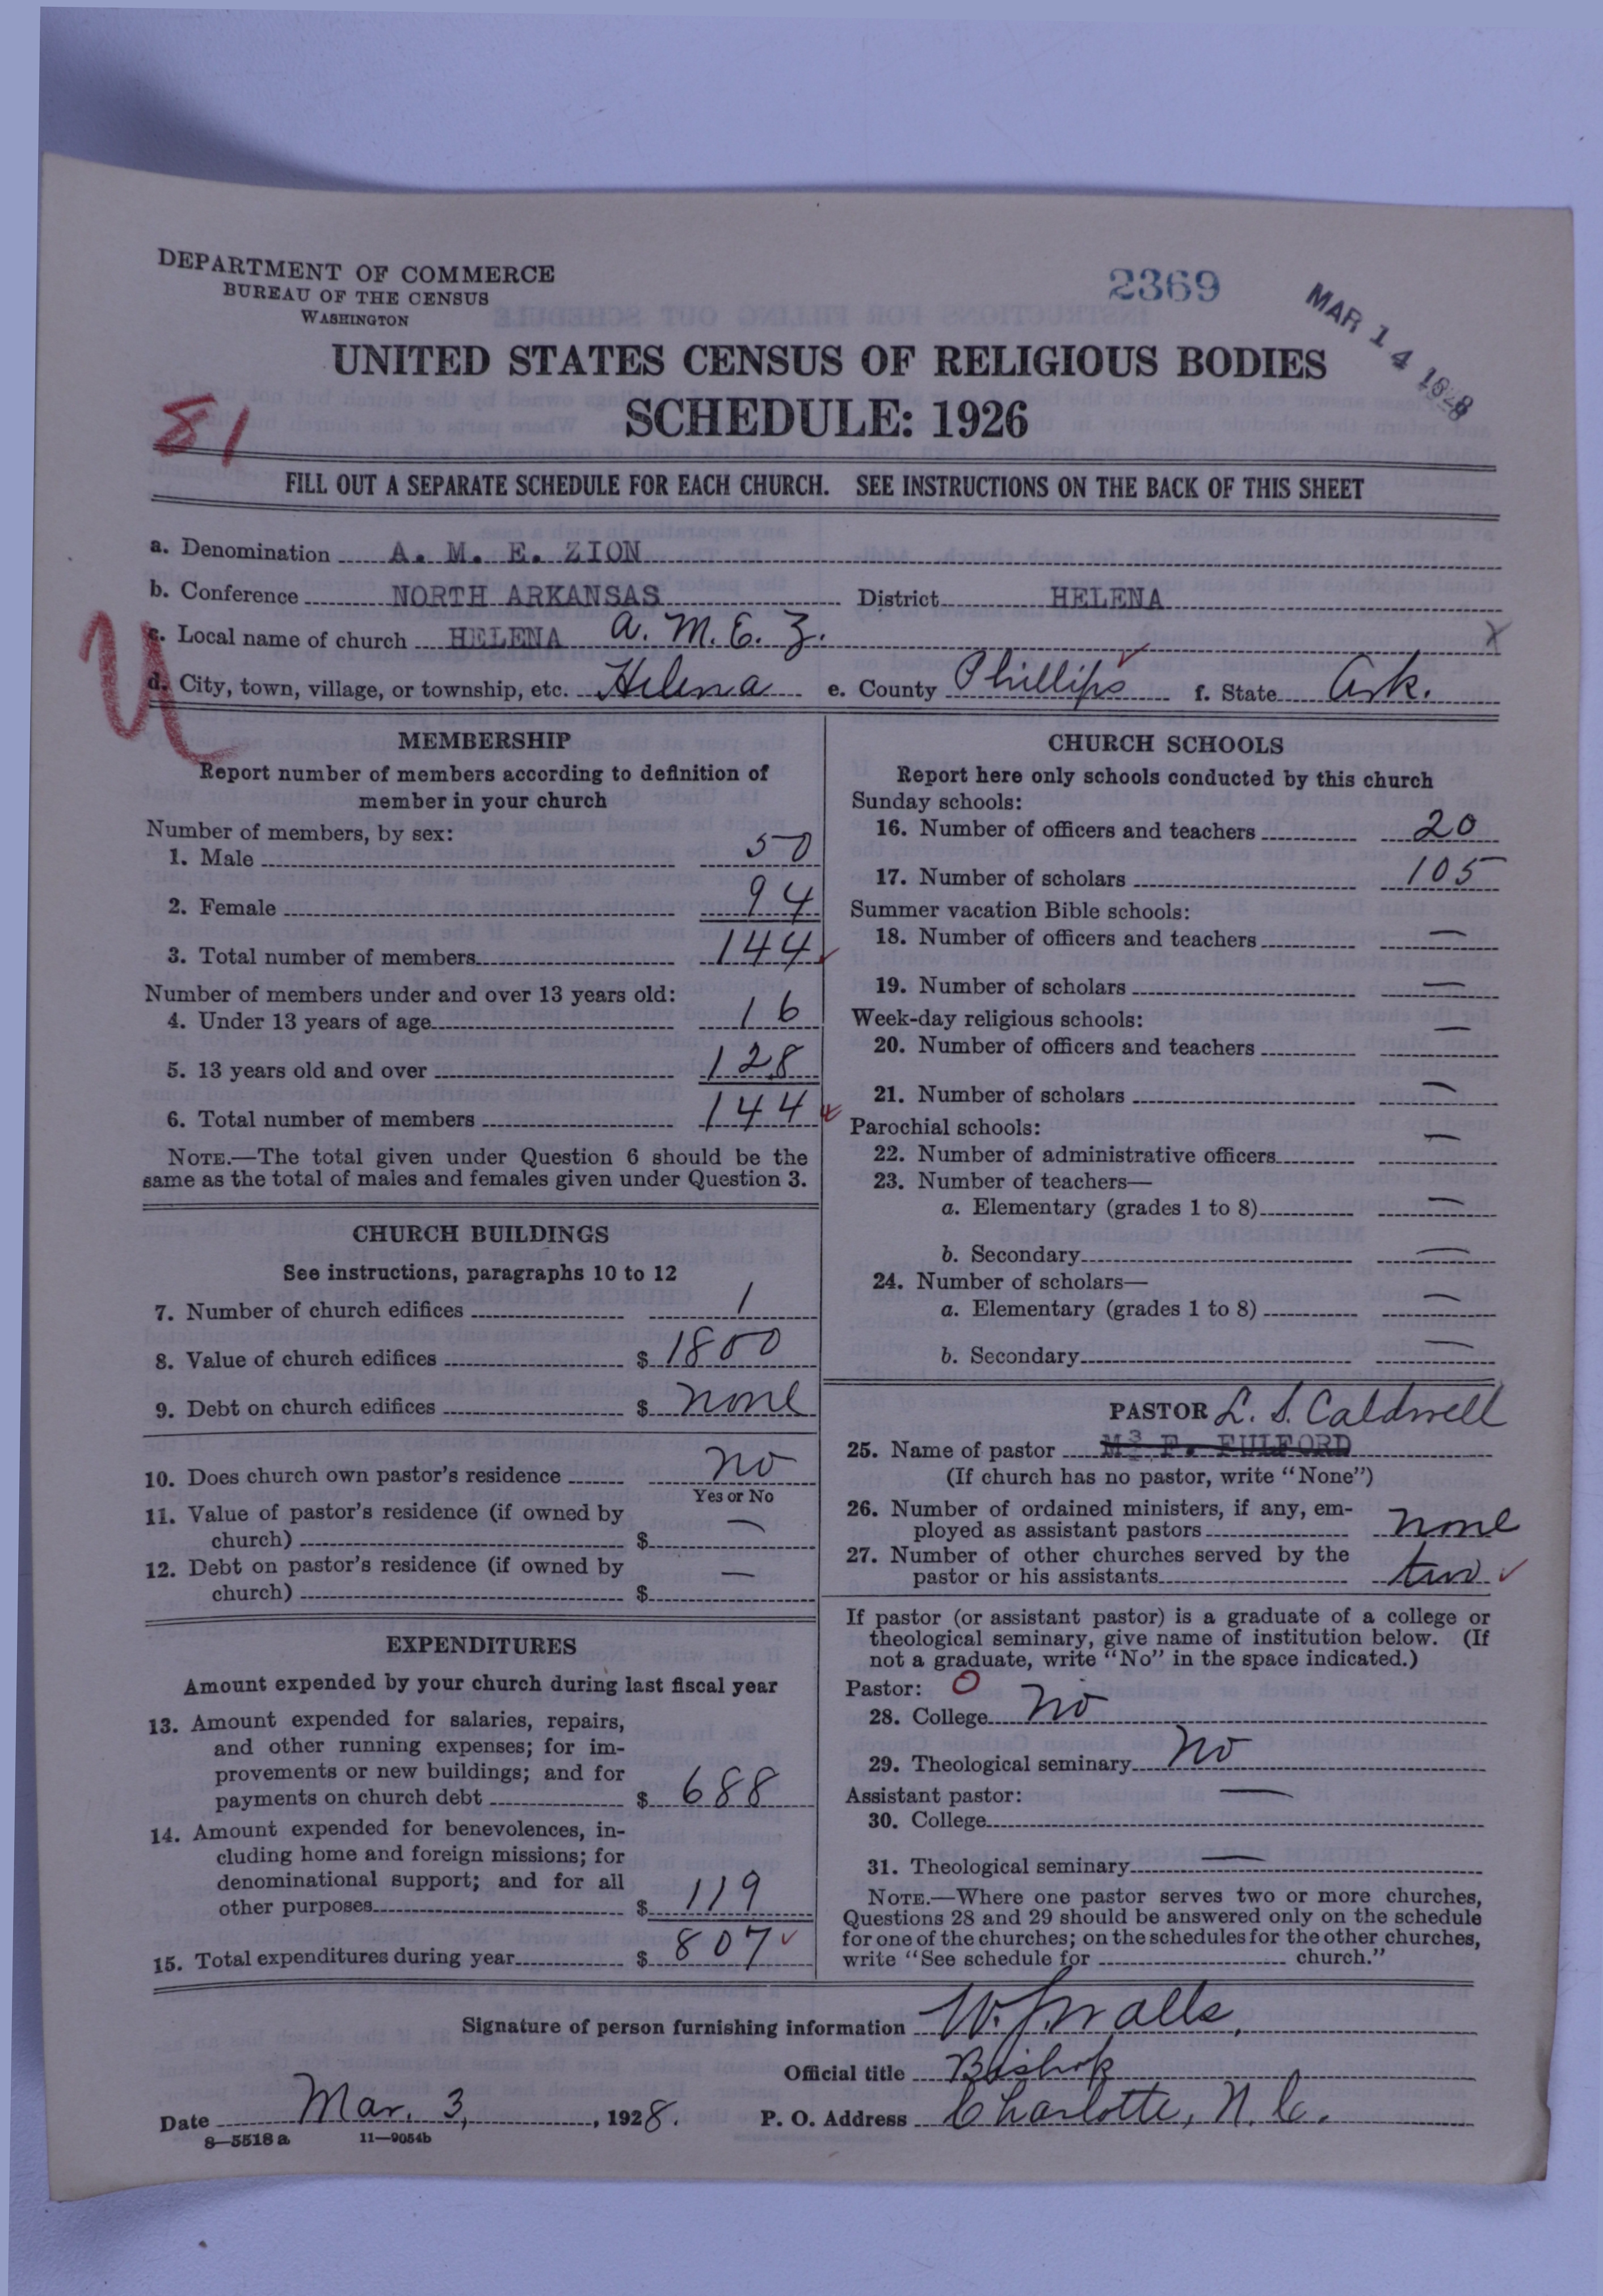 DEPARTMENT OF COMMERCE
BUREAU OF THE CENSUS
WASHINGTON
2369
MAR 14 1928
UNITED STATES CENSUS OF RELIGIOUS BODIES
SCHEDULE: 1926
81
FILL OUT A SEPARATE SCHEDULE FOR EACH CHURCH. SEE INSTRUCTIONS ON THE BACK OF THIS SHEET
a. Denomination A. M. E. ZION
b. Conference NORTH ARKANSAS District HELENA
c. Local name of church HELENA A. M. E. Z. X
U
d. City, town, village, or township, etc. Helena e. County Phillips f. State Ark.
MEMBERSHIP
Report number of members according to definition of
member in your church
Number of members, by sex:
1. Male 50
2. Female 94
3. Total number of members 144
Number of members under and over 13 years old:
4. Under 13 years of age 16
5. 13 years old and over 128
6. Total number of members 144
NOTE.—The total given under Question 6 should be the
same as the total of males and females given under Question 3.
CHURCH BUILDINGS
See instructions, paragraphs 10 to 12
7. Number of church edifices 1
8. Value of church edifices $ 1800
9. Debt on church edifices $ none
10. Does church own pastor's residence no
Yes or No
11. Value of pastor's residence (if owned by
church) $ —
12. Debt on pastor's residence (if owned by
church) $ —
EXPENDITURES
Amount expended by your church during last fiscal year
13. Amount expended for salaries, repairs,
and other running expenses; for im-
provements or new buildings; and for
payments on church debt $ 688
14. Amount expended for benevolences, in-
cluding home and foreign missions; for
denominational support; and for all
other purposes $ 119
15. Total expenditures during year $ 807
CHURCH SCHOOLS
Report here only schools conducted by this church
Sunday schools:
16. Number of officers and teachers 20
17. Number of scholars 105
Summer vacation Bible schools:
18. Number of officers and teachers —
19. Number of scholars —
Week-day religious schools:
20. Number of officers and teachers —
21. Number of scholars —
Parochial schools:
22. Number of administrative officers —
23. Number of teachers—
a. Elementary (grades 1 to 8) —
b. Secondary —
24. Number of scholars—
a. Elementary (grades 1 to 8) —
b. Secondary —
PASTOR L. S. Caldwell
25. Name of pastor F. FULFORD
(If church has no pastor, write "None")
26. Number of ordained ministers, if any, em-
ployed as assistant pastors none
27. Number of other churches served by the
pastor or his assistants two
If pastor (or assistant pastor) is a graduate of a college or
theological seminary, give name of institution below. (If
not a graduate, write "No" in the space indicated.)
Pastor: 0
28. College No
29. Theological seminary No
Assistant pastor:
30. College —
31. Theological seminary —
NOTE.—Where one pastor serves two or more churches,
Questions 28 and 29 should be answered only on the schedule
for one of the churches; on the schedules for the other churches,
write "See schedule for church."
Signature of person furnishing information W. J. Walls,
Official title Bishop
Date Mar. 3, 1928. P. O. Address Charlotte, N. C.
8—5518 a 11—9054b